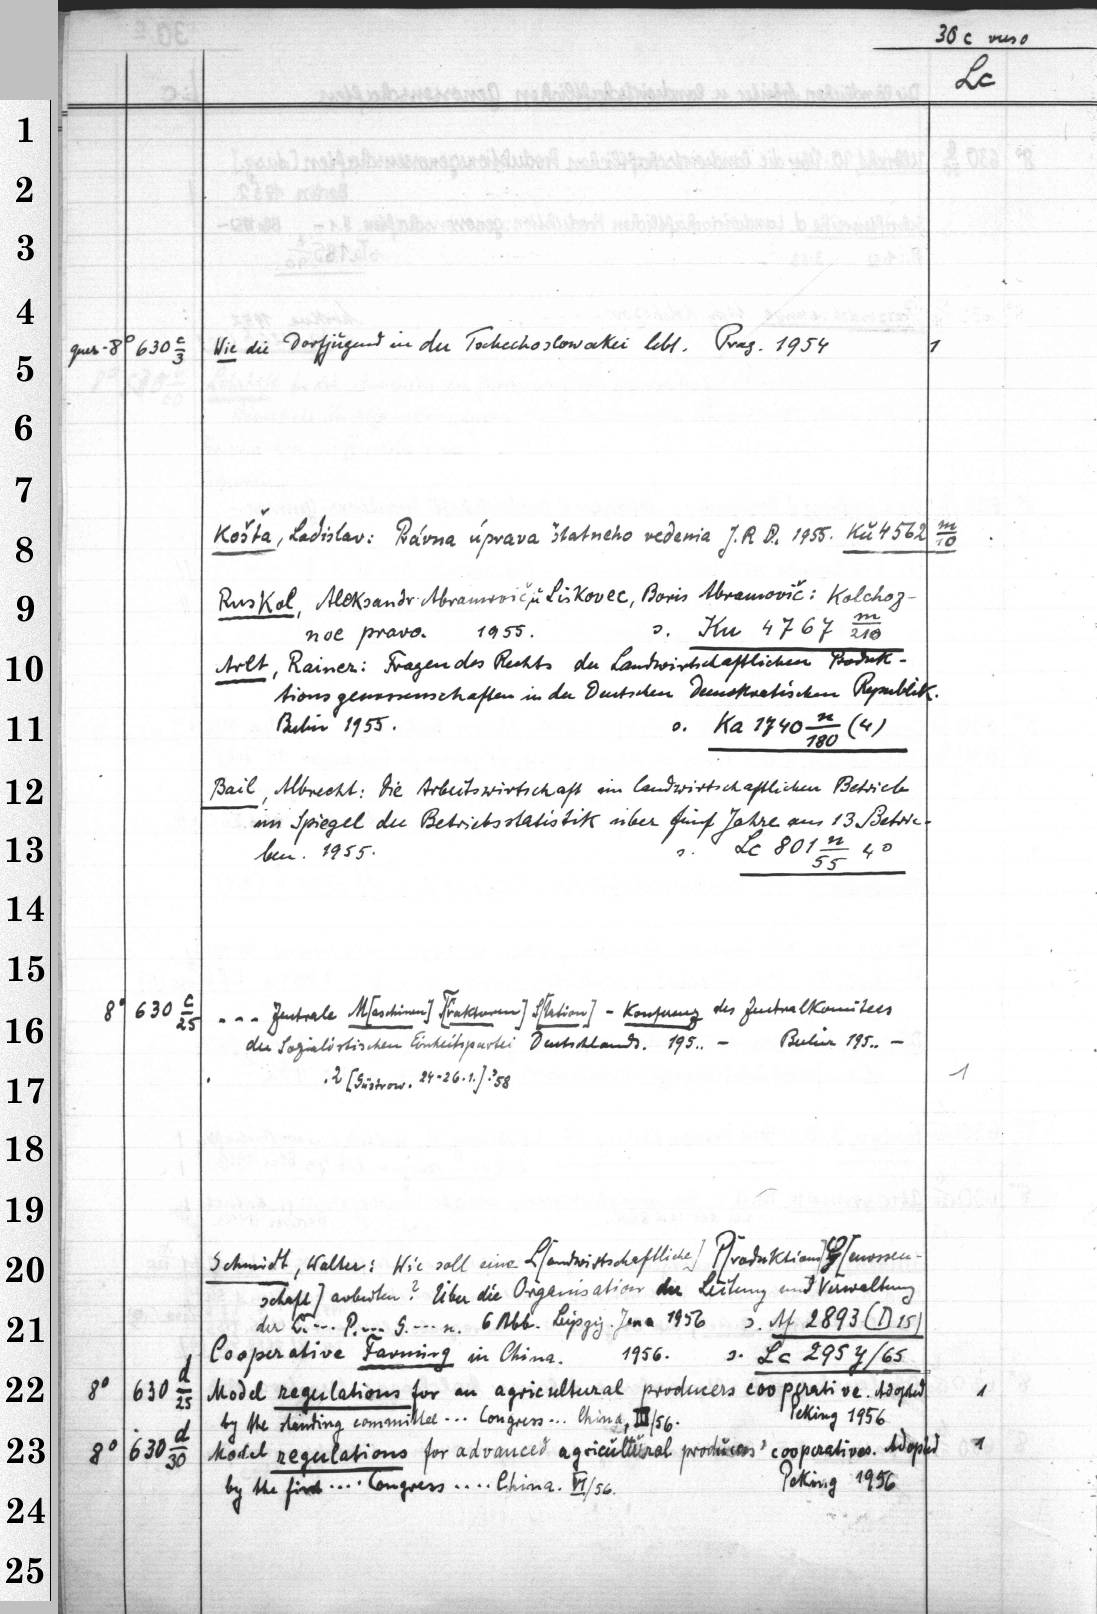 30 c verso
Lc
1
2
3
4
quer-8° 630 c/3 Wie die Dorfjugend in der Tschechoslowakei lebt. Prag. 1954 1
5
6
7
Košťa, Ladislav: Právna úprava štatneho vedenia J.R.D. 1955. Kü 4562 m/10
8
Ruskol, Aleksandr Abramovič, u Liskovec, Boris Abramovič: Kolchoz-
9
noe pravo. 1955. s. Ku 4767 m/210
10
Arlt, Rainer: Fragen des Rechts der Landwirtschaftlichen Produk-
tionsgenossenschaften in der Deutschen Demokratischen Republik.
11
Berlin 1955. s. Ka 1740 n/180 (4)
12
Bail, Albrecht: Die Arbeitswirtschaft im landwirtschaftlichen Betriebe
im Spiegel der Betriebsstatistik über fünf Jahre aus 13 Betrie-
13
ben. 1955. s. Lc 801 n/55 4°
14
15
8° 630 c/25 --- Zentrale M[aschinen] T[raktoren] S[tation] - Konferenz des Zentralkomitees
16
der Sozialistischen Einheitspartei Deutschlands. 195.. - Berlin 195.. -
17
.2 [Güstrow. 24-26.1.] '58 1
18
19
20
Schmidt, Walter: Wie soll eine L[andwirtschaftliche] P[roduktions] G[enossen-
schaft] arbeiten? Über die Organisation der Leitung und Verwaltung
21
der L.--- P.--- G.---n. 6 Abb. Leipzig. Jena 1956 s. Af 2893 (D 15)
Cooperative Farming in China. 1956. s. Lc 295 y/65
22
8° 630 d/25 Model regulations for an agricultural producers cooperative. Adopted 1
by the standing committee --- Congress... China, III/56. Peking 1956
23
8° 630 d/30 Model regulations for advanced agricultural producers' cooperatives. Adopted 1
by the first .... Congress .... China. VI/56. Peking 1956
24
25